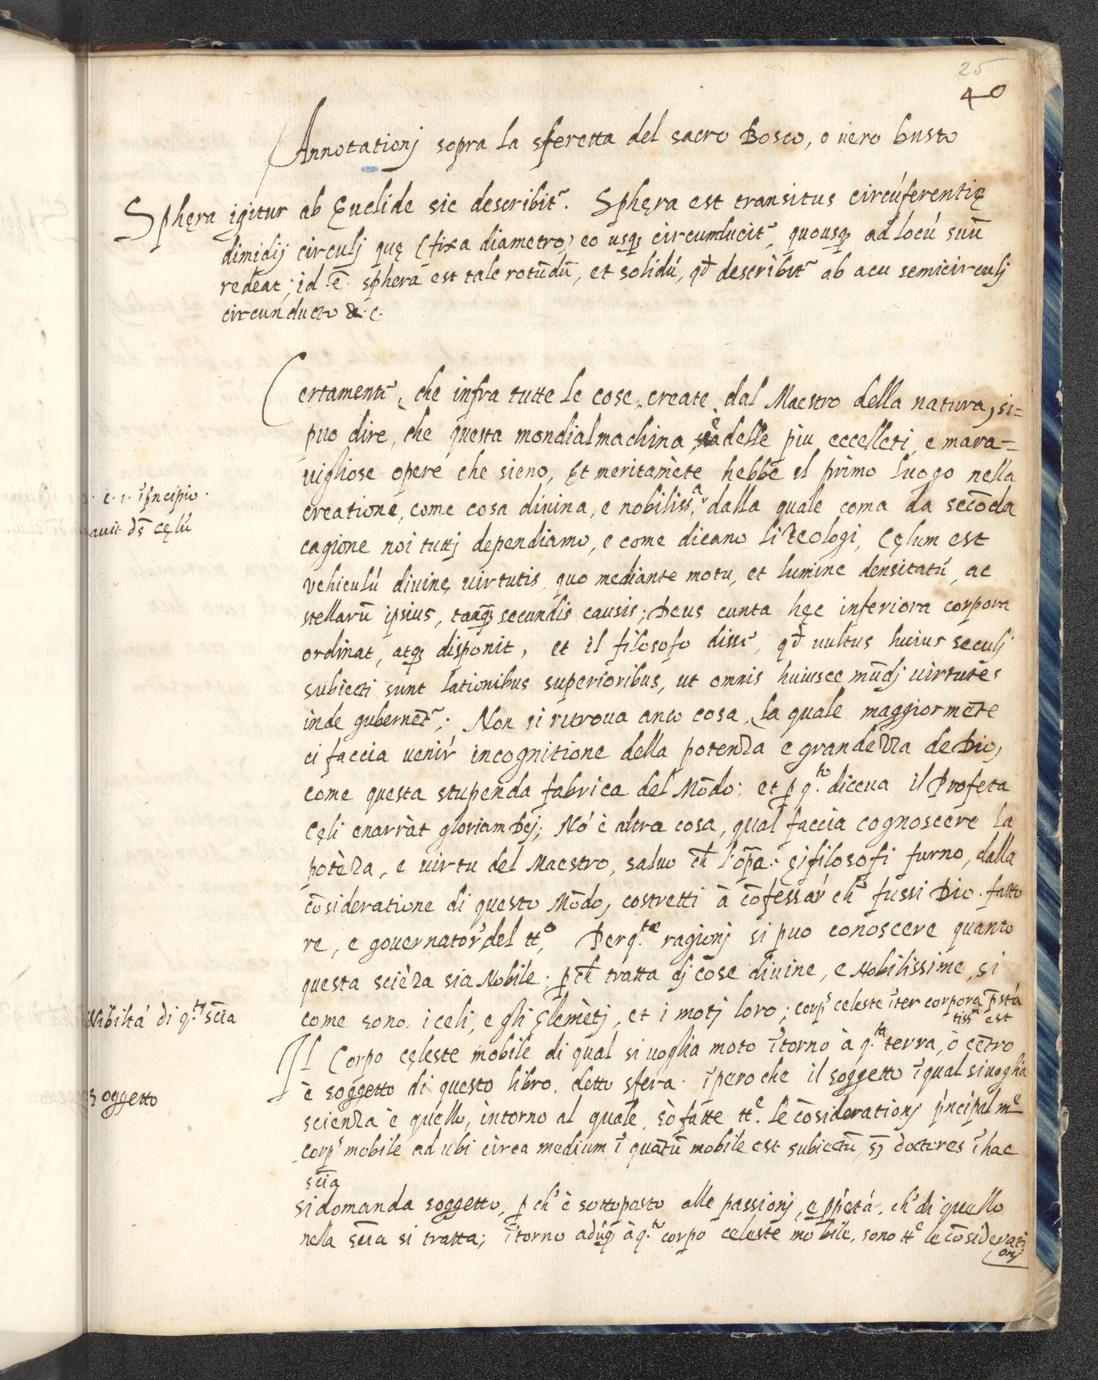 25
40
Annotationj sopra la sferetta del sacro Bosco, o uero busto
Sphęra igitur ab Euclide sic describit˜. Sphęra est transitus circúferentię
dimidij circulj quę (fixa diametro) eo usq; circumducit˜, quousq; ad locú suū
redeat; id ē. sphera est tale rotūdū, et solidú, qđ describit˜ ab acu semicirculj
circunducto &.c.
Certament˜, che infra tutte le cose create dal Maestro della natura, si=
puo dire, che questa mondial machina è delle piu eccelleti, e mara=
uigliose opere che sieno, Et meritamēte hebbe il primo luogo nella
creatione, come cosa diuina, e nobiliss.ª, dalla quale coma da secōda
cagione noi tuttj dependiamo, e come dicano li Teologi, Cęlum est
vehiculú diuinę uirtutis, quo mediante motu, et lumine densitatú, ac
stellarū ipsius, tanq̄ secundis causis; Deus cunta hęc inferiora corpora
ordinat, atq; disponit, et il filosofo diss˜, qđ uultus huius seculj
subiecti sunt lationibus superioribus, ut omnis huiusce mūdj uirtutes
inde gubernet˜; Non si ritroua anco cosa, la quale maggiormēte
ci faccia uenir incognitione della potenza e grandezza de Dio,
come questa stupenda fabrica del Mōdo; et p q.to diceua il Profeta
Cęli enarrāt gloriam Dej; Nō è altra cosa, qual faccia cognoscere la
potēza, e uirtu del Maestro, saluo ch̄ l'opa. ej filosofi furno, dalla
cōsideratione di questo Mōdo, costretti à cōfessar ch˜ fussi Dio fatto
re, e gouernator del tt.o, Per q.te ragionj si puo conoscere quanto
questa sciēza sia Nobile; p ch̄ tratta dj cose diuine, e Nobilissime, si
come sono i celi, e gli Elemētj, et i motj loro; corp˜ celeste īter corpora p̄stā
tiss˜ est
Il Corpo cęleste mobile di qual si uoglia moto ītorno à q.ta terra, ò cētro
è soggetto di questo libro, detto sfera. ipero che il soggetto ī qual si uoglia
scienza è quello, intorno al quale, sō fatte tt.e le cōsiderationj p̄ncipalm.e
corp˜ mobile ad ubi circa medium ī quatū mobile est subiectū, s; doctores ī hac
scīa
si domanda soggetto, p ch˜ è sottoposto alle passionj, e p̄pietá, ch˜ di quello
nella scīa si tratta; ītorno adūq; à q.to corpo celeste mobile, sono tt.e le cōsiderati
onj
. c. 1. ī p̄ncipio.
auit dś cęlū
Nobiltá di q.ta scīa
soggetto